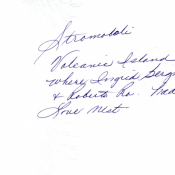 Stromboli
Volcanic Island
where Ingrid Berg
& Roberto Ro. had
Love Nest